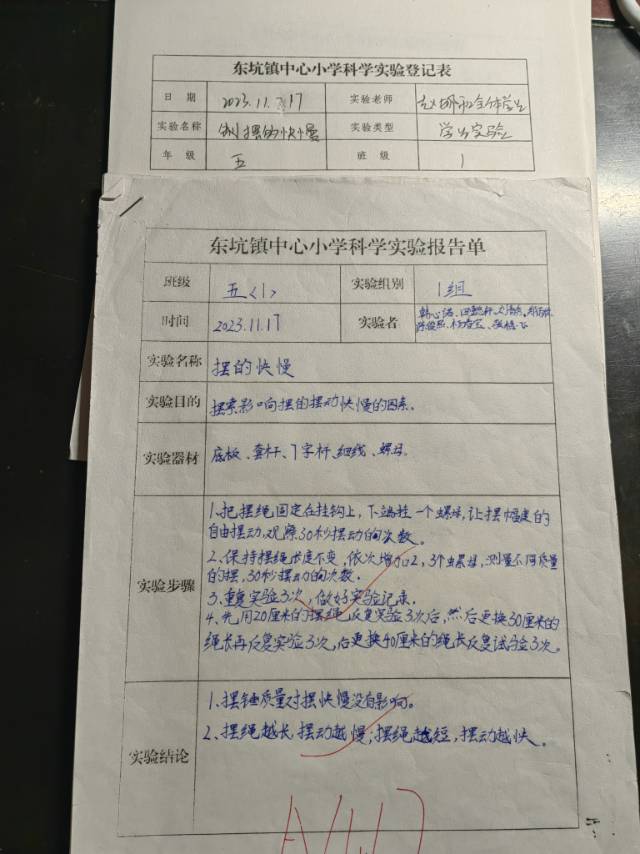 东坑镇中心小学科学实验登记表
日 期 2023.11.17 实验老师
实验名称 摆的快慢 实验类型 学生实验
年 级 五 班 级 1
东坑镇中心小学科学实验报告单
班级 五<1> 实验组别 1组
时间 2023.11.17 实验者
实验名称 摆的快慢
实验目的 探索影响摆的摆动快慢的因素。
实验器材 底板、套杆、7字杆、细线、螺母。
实验步骤
1、把摆绳固定在挂钩上,下端挂一个螺母,让摆幅度的
自由摆动,观察30秒摆动的次数。
2、保持摆绳长度不变,依次增加2,3个螺母,测量不同质量
的摆,30秒摆动的次数.
3、重复实验3次,做好实验记录.
4、先用20厘米的摆绳反复实验3次后,然后更换30厘米的
绳长再反复实验3次,后更换40厘米的绳长反复试验3次。
实验结论
1、摆锤质量对摆快慢没有影响。
2、摆绳越长,摆动越慢;摆绳越短,摆动越快。